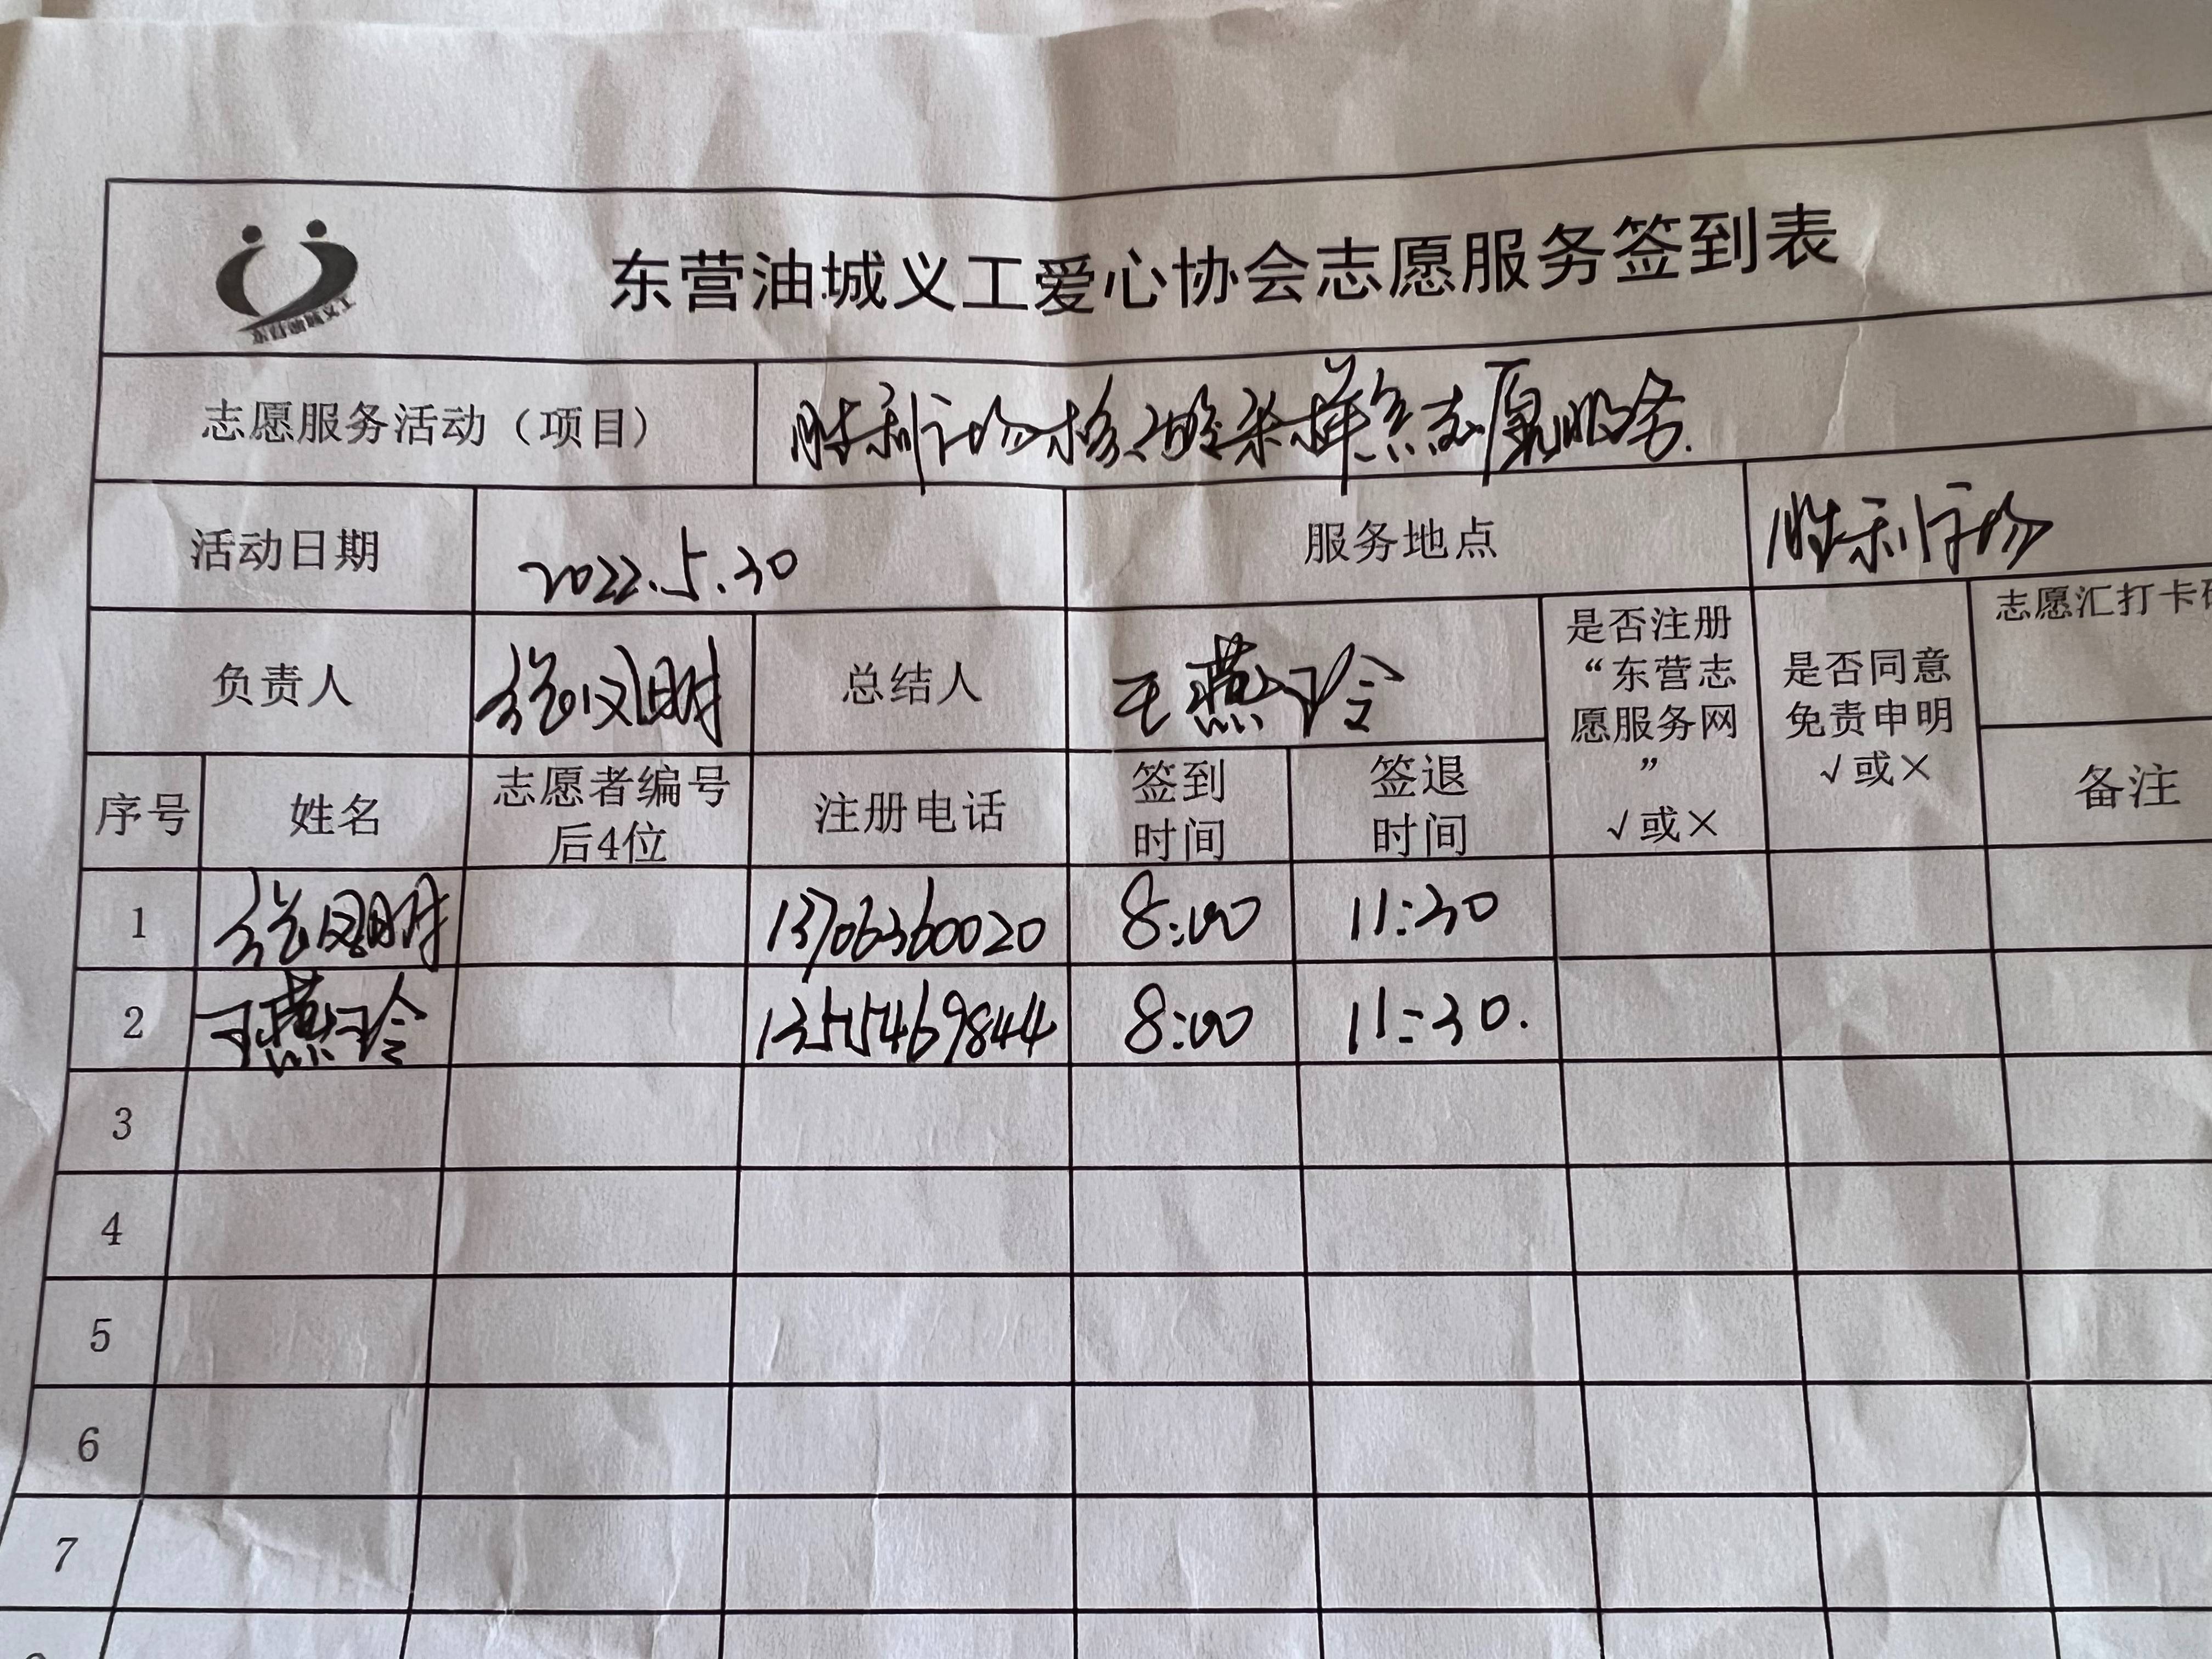 东营油城义工爱心协会志愿服务签到表
志愿服务活动（项目） 胜利市场核酸采样点志愿服务.
活动日期 2022.5.30 服务地点 胜利市场
负责人 总结人 王燕玲 是否注册“东营志愿服务网” √或× 是否同意免责申明 √或× 志愿汇打卡
序号 姓名 志愿者编号后4位 注册电话 签到时间 签退时间 备注
1 13706360020 8:00 11:30
2 王燕玲 1355469844 8:00 11:30.
3
4
5
6
7